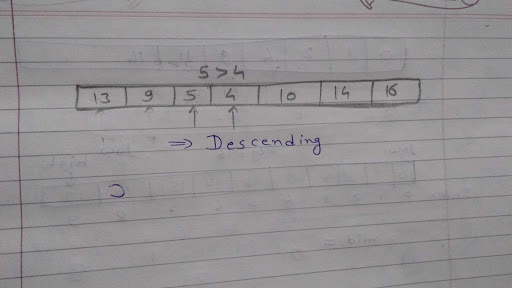 5 > 4
13 9 5 4 10 14 16
⇒ Descending